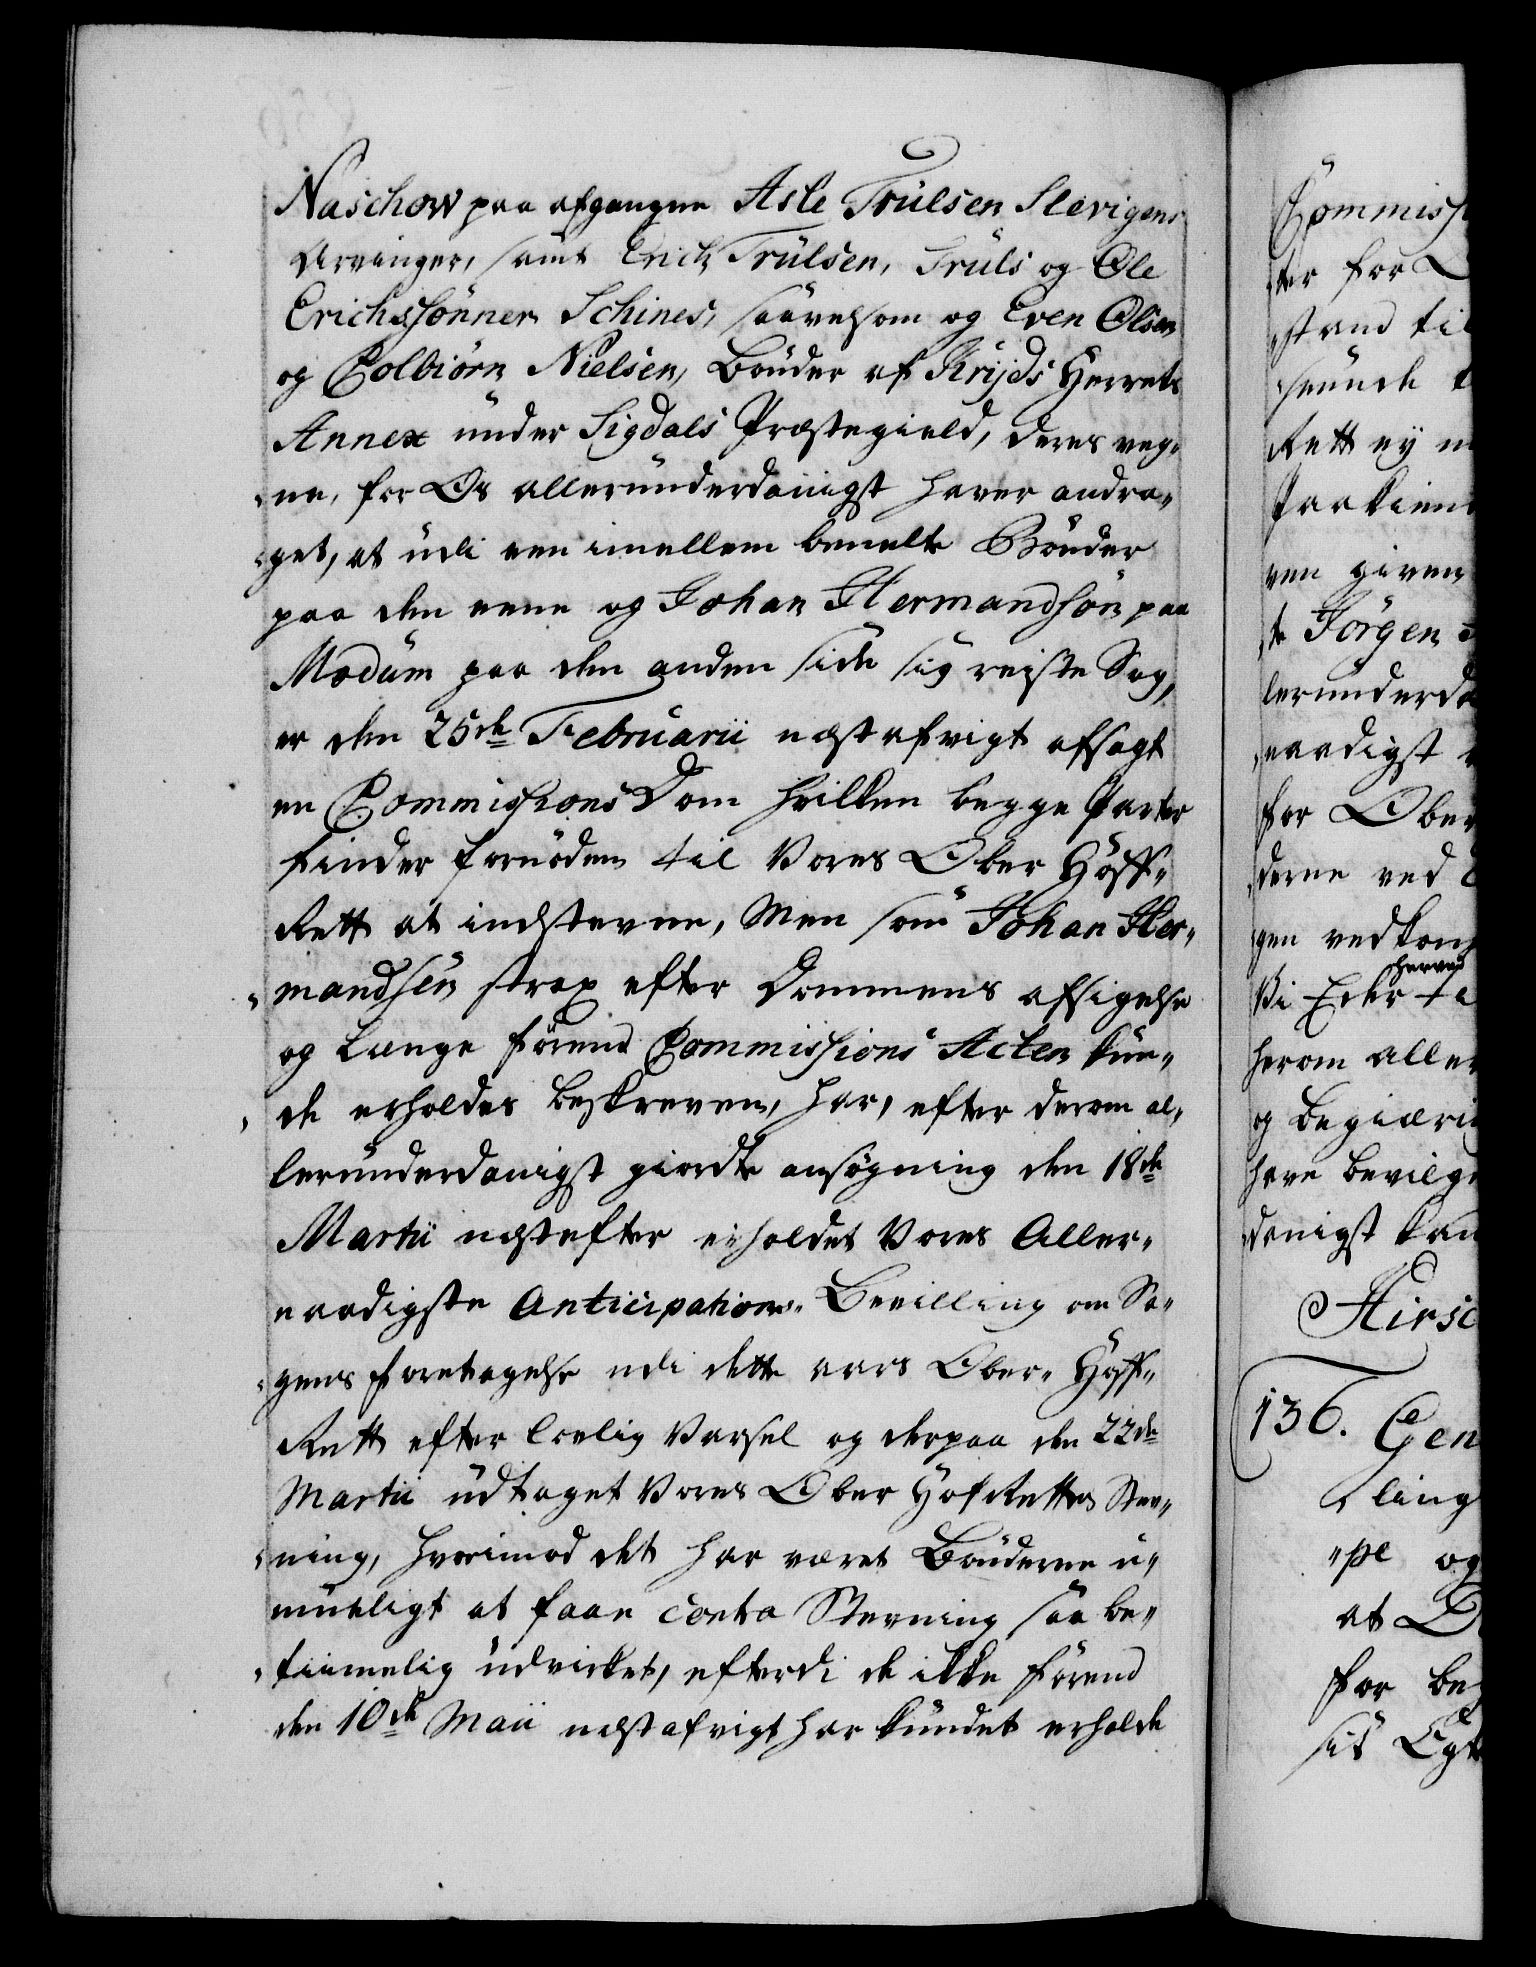 Naschow paa afgangne Asle Trulsen Slevigens
Arvinger, samt Erich Trülsen, Truls og Ole
Erichssønner Schines, saavelsom og Even Olsen
og Colbiørn Nielsen, Bønder af Krijds Herrets
Annex ünder Sigdals Præstegield, deres veg„
„ne, for Os alleründerdanigst haver andra„
„get, at üdi een imellem bemelte Bønder
paa den eene og Johan Hermandsøn paa
Modüm paa den anden side sig reiste Sag,
er den 25de Februarii næstafvigt afsagt
en Commissions Dom hvilken begge Parter
finder fornøden til Vores Ober Hoff„
Rett at indstevne, Men som Johan Her„
„mandsen strax efter Dommens afsigelse
og længe førend Commissions Acten kün„
„de erholdes beskreven, har, efter derom al„
leründerdanigst giordte ansøgning den 18de
Martii næstefter erholdet Vores Aller„
naadigste Anticipations„ Bevilling om Sa„
„gens foretagelse udi dette aars Ober„ Hoff„
Rett efter lovlig Varsel og derpaa den 22de
Martii üdtaget Vores Ober Hof Rettes Stev„
„ning, hvorimod det har været Bønderne u„
mueligt at faae Contra Stevning saa be„
„tiimelig üdvirket, efterdi de ikke førend
den 10de Maii næstafvigt har kündet erholde
Commiss
ter for
stand til
Rett ey
ven given
te Jørgen
lerunderda
naadigst
for Ober
derne ved
gen vedkom
herved
Vi Eder
herom aller
og begiæri
have bevilg
danigst
136. Gen
ling
„pe og
at
for be
sit Egt